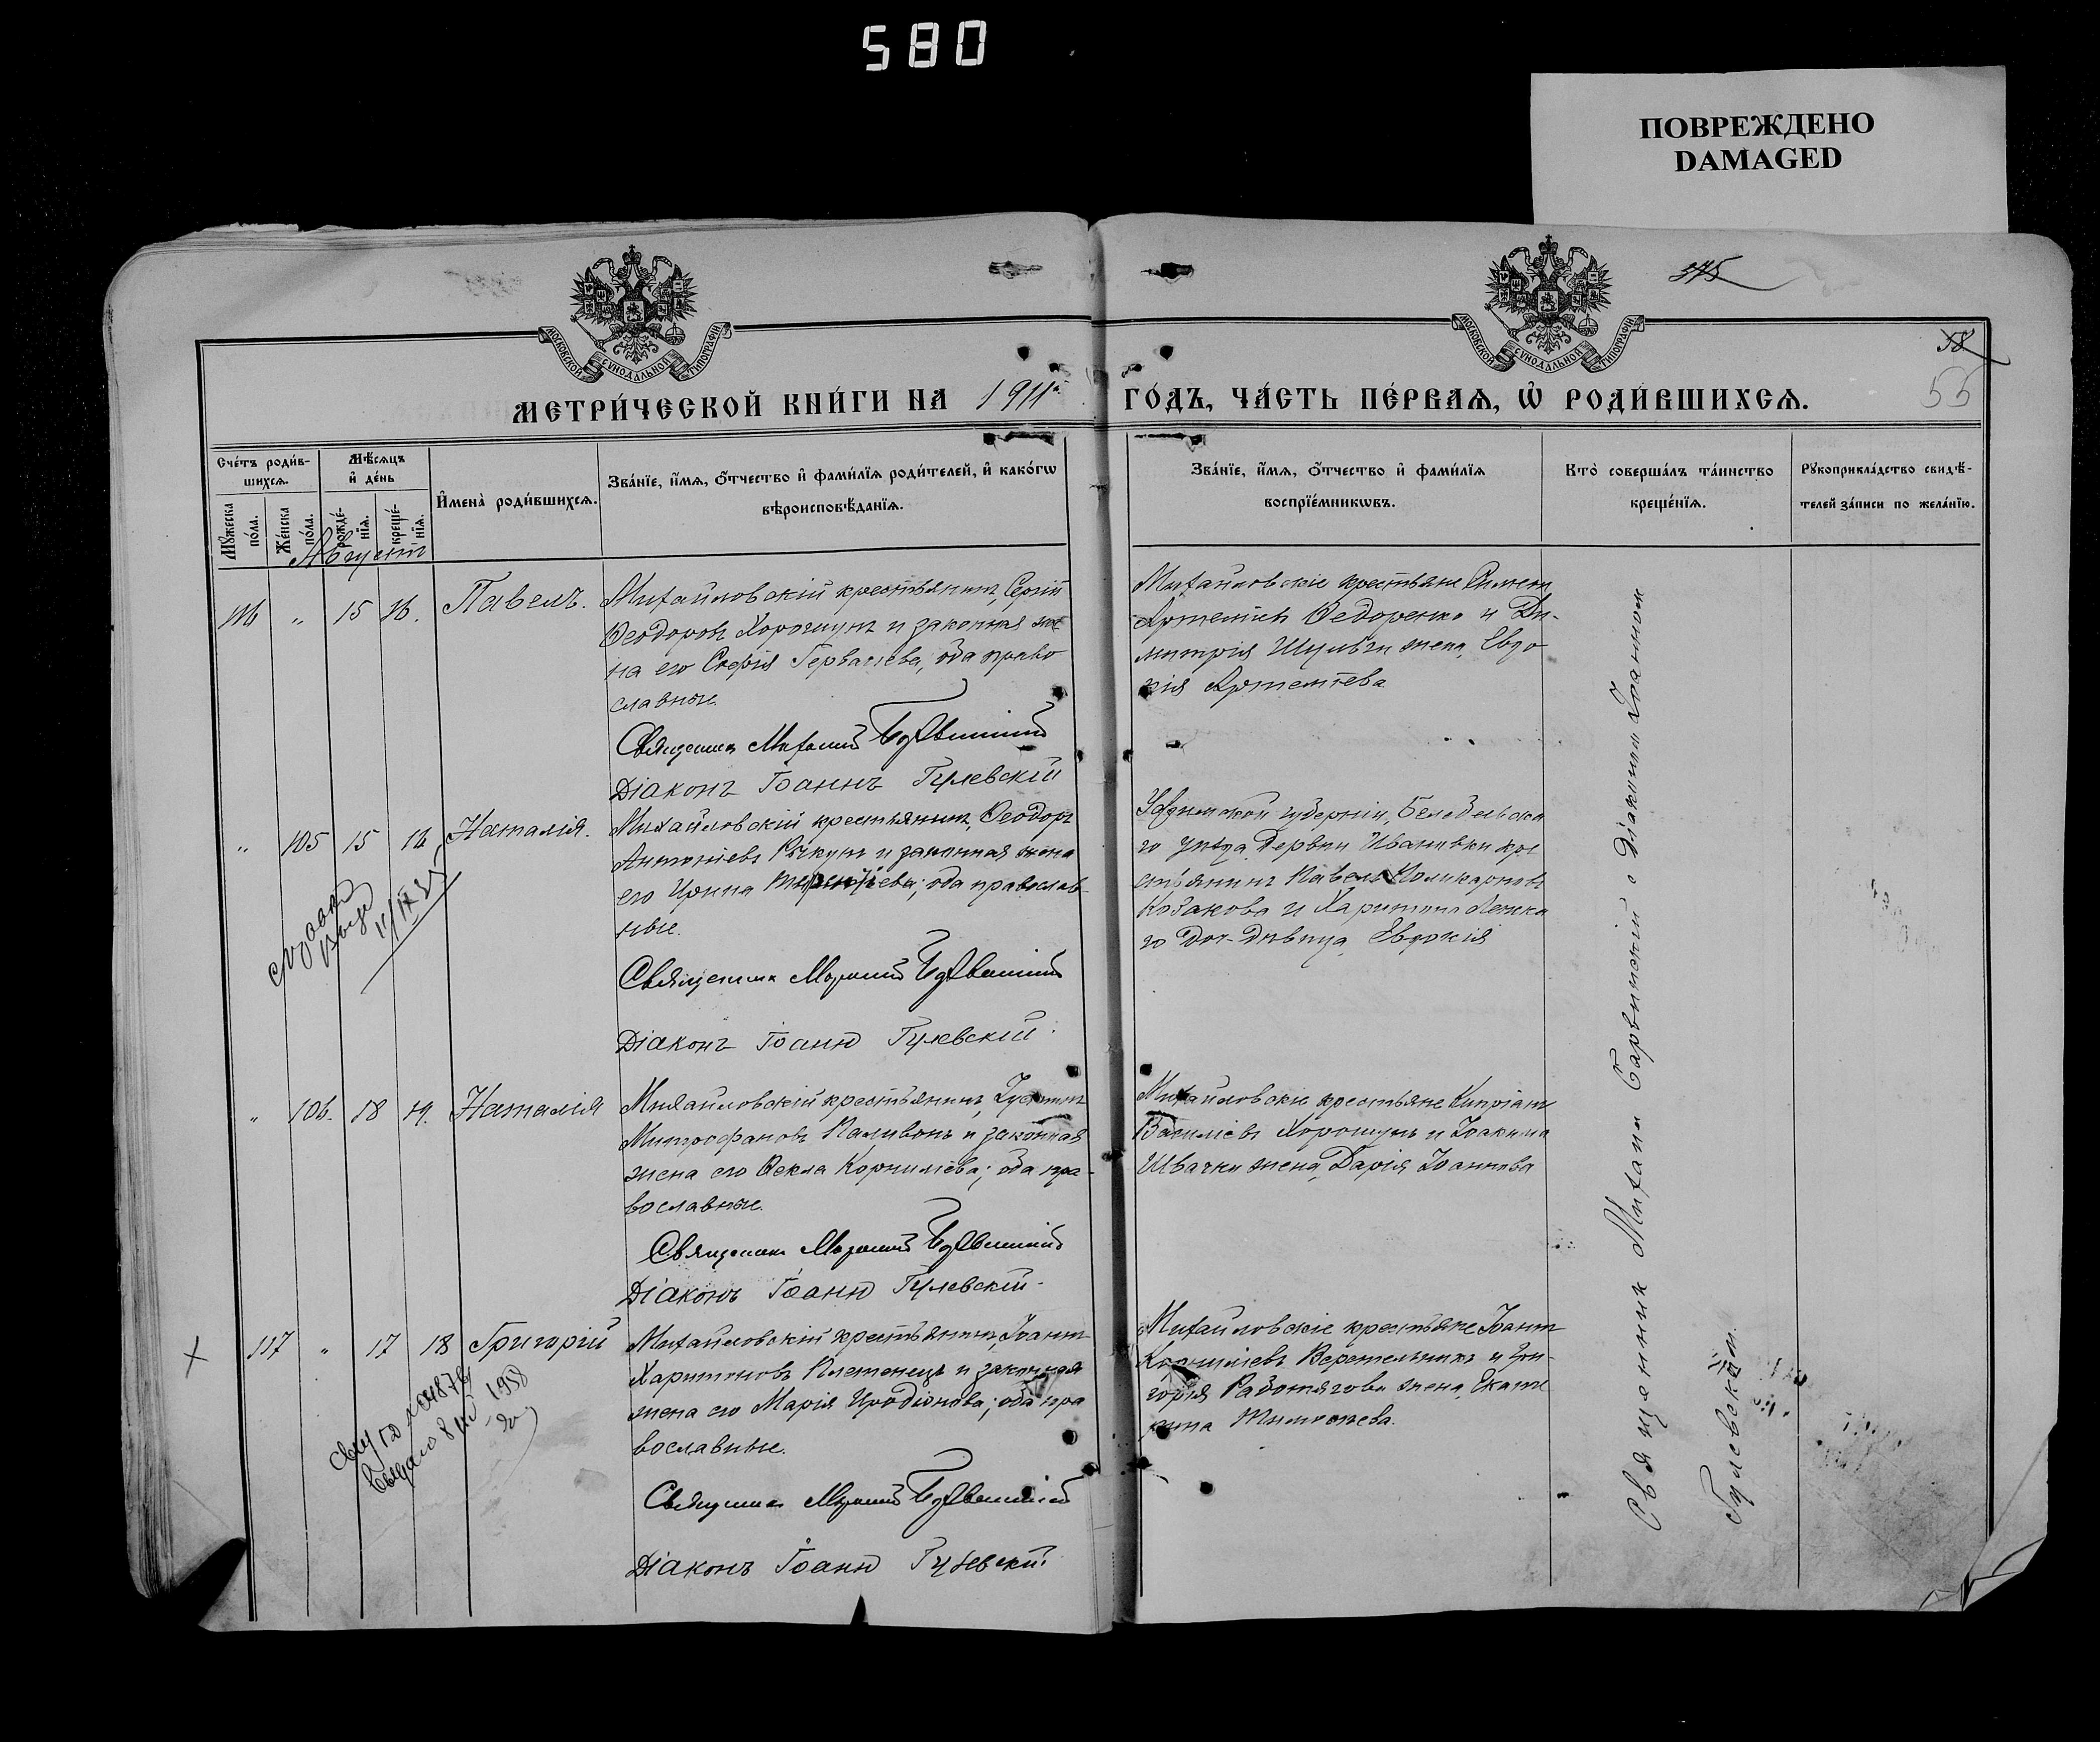 580
ПОВРЕЖДЕНО
DAMAGED
МОСКОВСКОЙ СѴНОДАЛЬНОЙ ТИПОГРАФІИ
МОСКОВСКОЙ СѴНОДАЛЬНОЙ ТИПОГРАФІИ
375
58
55
МЕТРИ́ЧЕСКОЙ КНИ́ГИ НА 1911й ГО́ДЪ, ЧА́СТЬ ПЕ́РВАѦ, Ѡ҆ РОДИ́ВШИХСѦ.
Сче́тъ роди́в-
шихсѧ.
Мꙋ́жеска по́ла.
Же́нска по́ла.
Мѣ́сѧцъ
и҆ де́нь
рожде́-
нїѧ.
креще́-
нїѧ.
И҆мена̀ роди́вшихсѧ.
Зва́нїе, и҆́мѧ, ѻ҆́тчество и҆ фами́лїѧ роди́телей, и҆ како́гѡ
вѣроисповѣ́данїѧ.
Зва́нїе, и҆́мѧ, ѻ҆́тчество и҆ фами́лїѧ
воспрїе́мникѡвъ.
Кто̀ соверша́лъ та́инство
креще́нїѧ.
Рꙋкоприкла́дство свидѣ́-
телей за́писи по жела́нїю.
Августъ
116 " 15 16. Павелъ.
Михайловскій крестьянинъ, Сергій
Ѳеодоровъ Хорошунъ и законная же
на его Софія Гервасіева, оба право
славные.
Священникъ Михаилъ
Діаконъ Іоаннъ Гулевскій
Михайловскіе крестьяне Симеон
Артеміевъ Ѳедоренко и Ди-
митрія Шульги жена, Евдо
кія Артеміева
" 105 15 16 Наталія.
Михайловскій крестьянинъ, Ѳеодоръ
Антоніевъ и законная жена
его Ирина Терентіева; оба православ-
ные.
Священникъ Михаилъ
Діаконъ Іоаннъ Гулевскій.
Уфимской губерніи, Белебейска
го уѣзда, Дервни Ивановки кре
стьянинъ Павелъ Поликарповъ
Козаковъ и Харитона
го доч-дѣвица, Евдокія
" 106. 18 19. Наталія
Михайловскій крестьянинъ, Іустинъ
Митрофановъ Паливонъ и законная
жена его Ѳекла Корниліева; оба пра-
вославные.
Священникъ Михаилъ
Діаконъ Іоаннъ Гулевскій.
Михайловскіе крестьяне Кипріанъ
Василіевъ Хорошунъ и Іоакима
Швачки жена, Дарія Іоаннова
117 " 17 18 Григорій
Михайловскій крестьянинъ, Іоаннъ
Харитоновъ Племенецъ и законная
жена его Марія Иродіонова; оба пра
вославные.
Священникъ Михаилъ
Діаконъ Іоаннъ Гулевскій
Михайловскіе крестьяне Іоаннъ
Корниліевъ Веретельникъ и Гри-
горія Работягова жена, Екате
рина Тимоѳеева.
Священникъ Михаилъ с діакономъ Іоанномъ
Гулевскимъ.